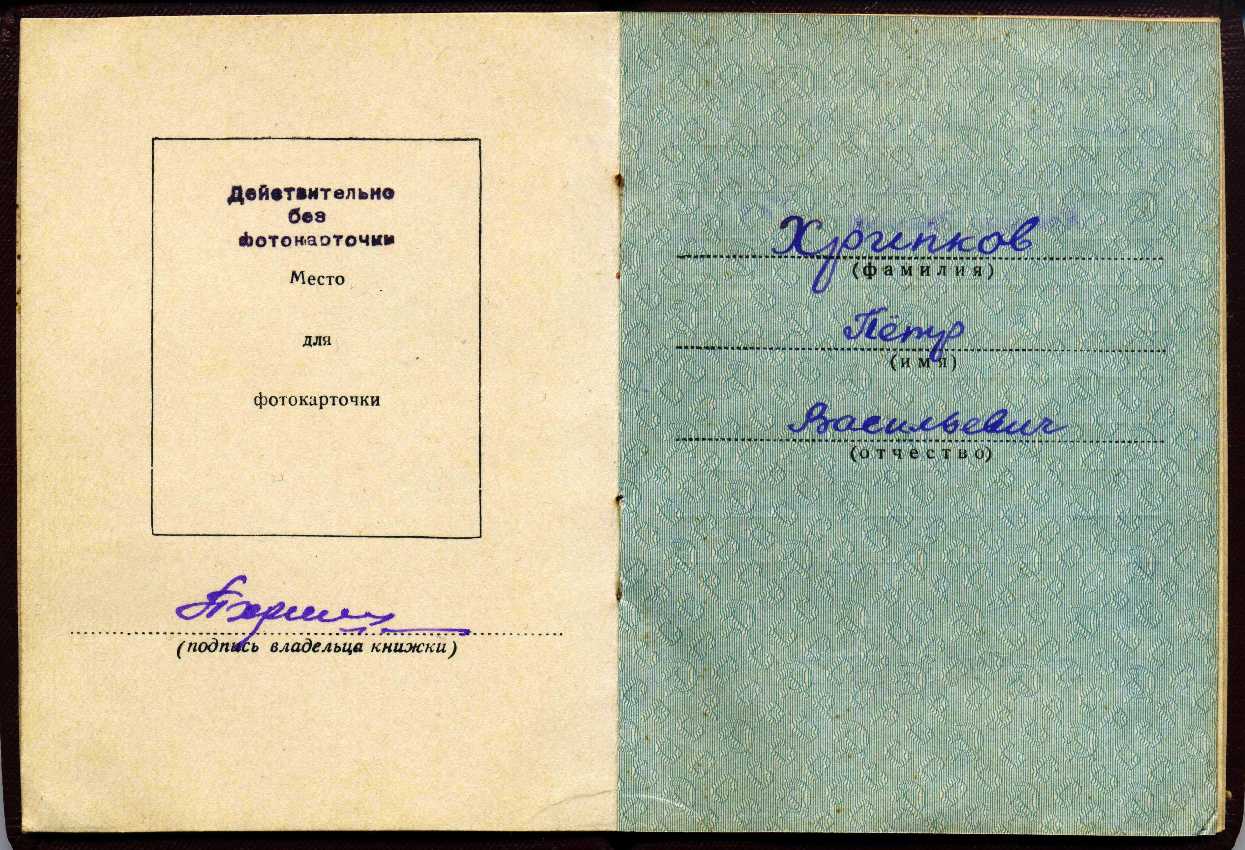 Действительно
без
фотокарточки
Место
для
фотокарточки
(подпись владельца книжки)
Хрипков
(фамилия)
Пётр
(имя)
Васильевич
(отчество)